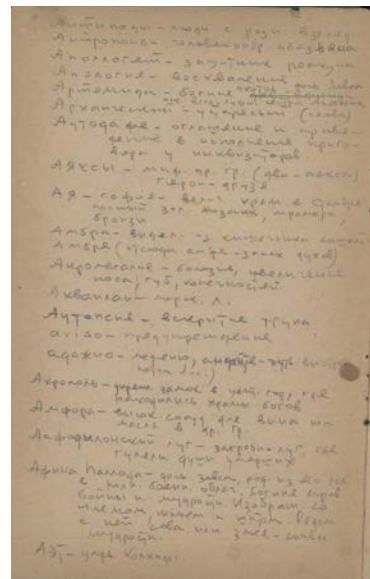 Антиподы - люди с разн. взгляд.
Антропоид - человекообр. обезьяна
Апологет - защитник реакции
Апология - восхваление
Артемида - богиня охоты - дочь Зевса
Архаический - устарелый (слова)
Аутодафе - оглашение и приве-
дение в исполнение приго-
вора у инквизиторов.
Аяксы - миф. др. гр. (два-Аякса)
герои - друзья
Ая - София - велич. храм в
полный зол. мозаик, мрамора,
бронзы
Амбра - выдел. из кишечника
Амбре (отсюда амбре - запах духов)
Акромегалия - болезнь, увеличение
носа, губ, конечностей
Аквилан - морск. л.
Аутопсия - вскрытие трупа
aviso - предупреждение
адажио - медленно,
Акрополь - замок в центр. гор., где
находились храмы богов
Амфора - сосуд для вина или
масла в др. Гр.
Асфодилонский луг - загробн. луг, где
гуляли души умерших
Афина Паллада - дочь Зевса, род. из его гол.
с полн. боевы. облач. богиня
войны и мудрости. Изображ. со
шлемом, копьем и Рядом
с ней сова или змея - символ
мудрости.
Аэт - царь Колхиды